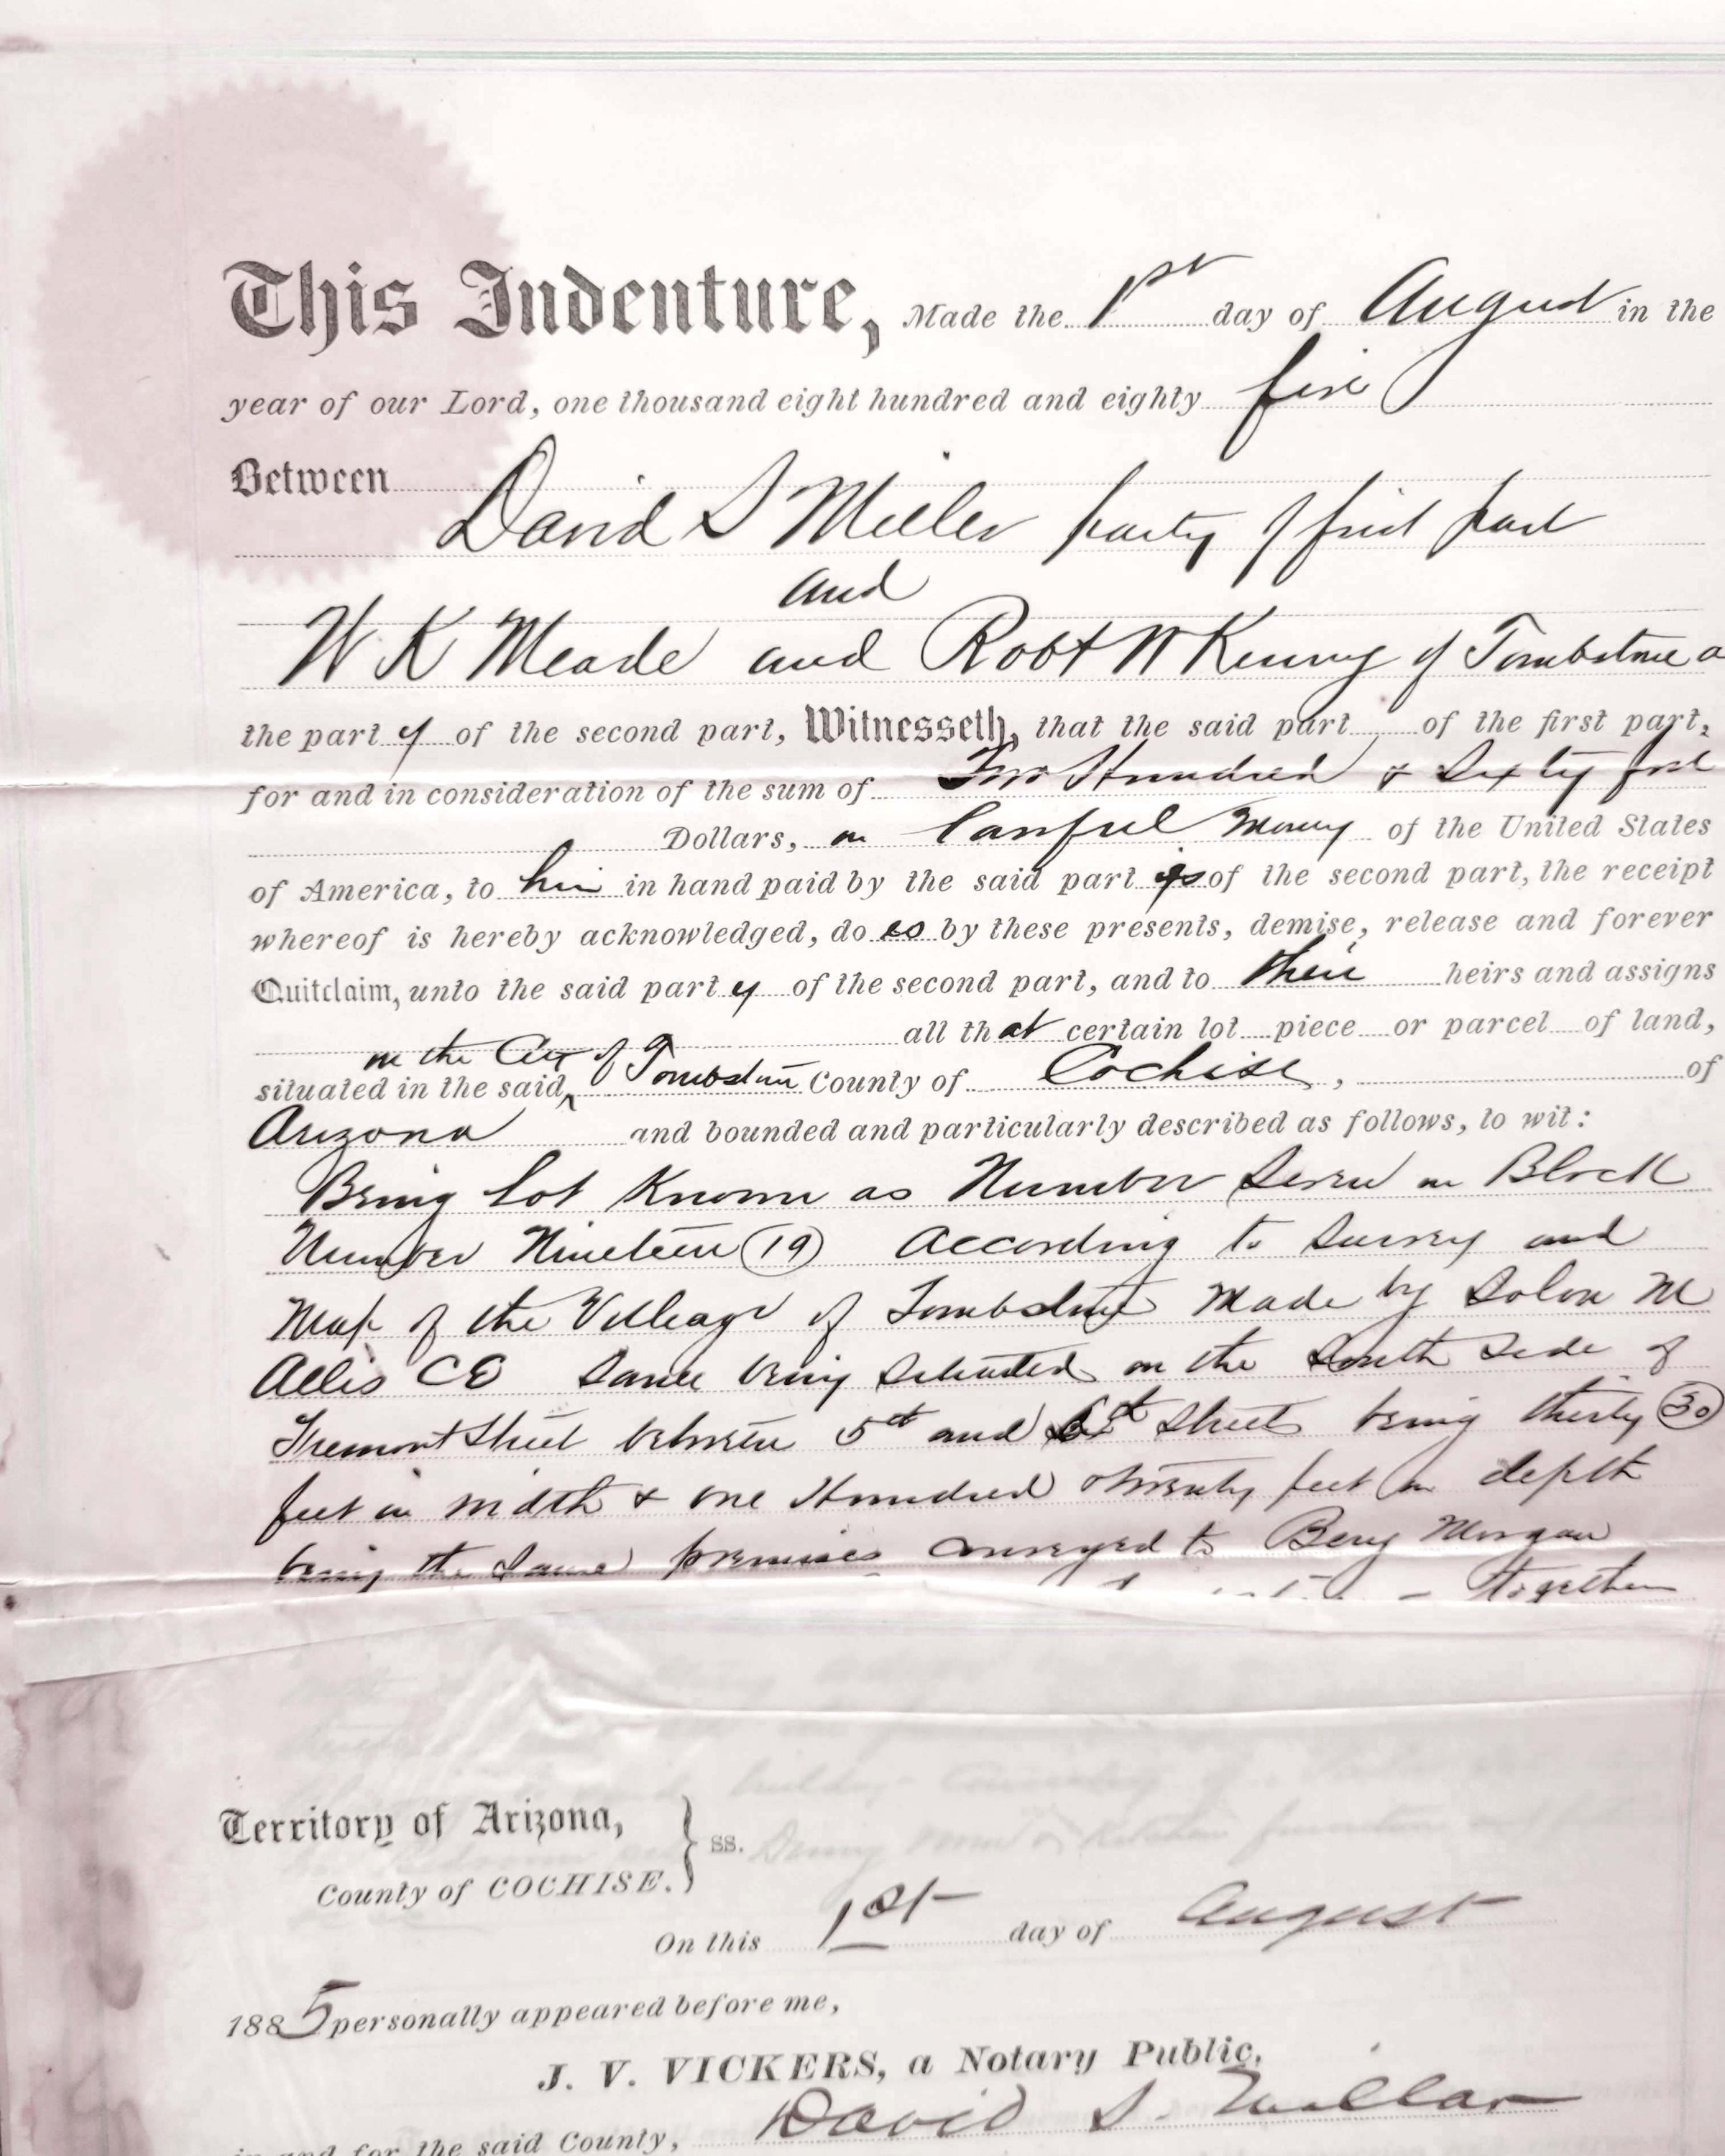 This Indenture, Made the 1st day of August in the
year of our Lord, one thousand eight hundred and eighty five
Between
David S Miller party of first part
and
W K Meade and Robt W Kenny of Tombstone
the party of the second part, Witnesseth, that the said part of the first part,
for and in consideration of the sum of Two Hundred & Sixty five
Dollars, in lawful money of the United States
of America, to him in hand paid by the said part of the second part, the receipt
whereof is hereby acknowledged, does by these presents, demise, release and forever
Quitclaim, unto the said party of the second part, and to their heirs and assigns
all that certain lot piece or parcel of land,
in the City of Tombstone
situated in the said County of Cochise, of
Arizona and bounded and particularly described as follows, to wit:
Being lot Known as Number Seven in Block
Number Nineteen (19) According to Survey and
Map of the Village of Tombstone Made by Solon M
Allis CE Same being Situated on the South Side of
Fremont Street between 5th and 6th Streets being thirty (30)
feet in width & one Hundred twenty feet in depth
being the Same premises conveyed to Morgan
together
Territory of Arizona, } ss.
County of COCHISE.
On this 1st day of August
1885 personally appeared before me,
J. V. VICKERS, a Notary Public,
in and for the said County, David S. Millar